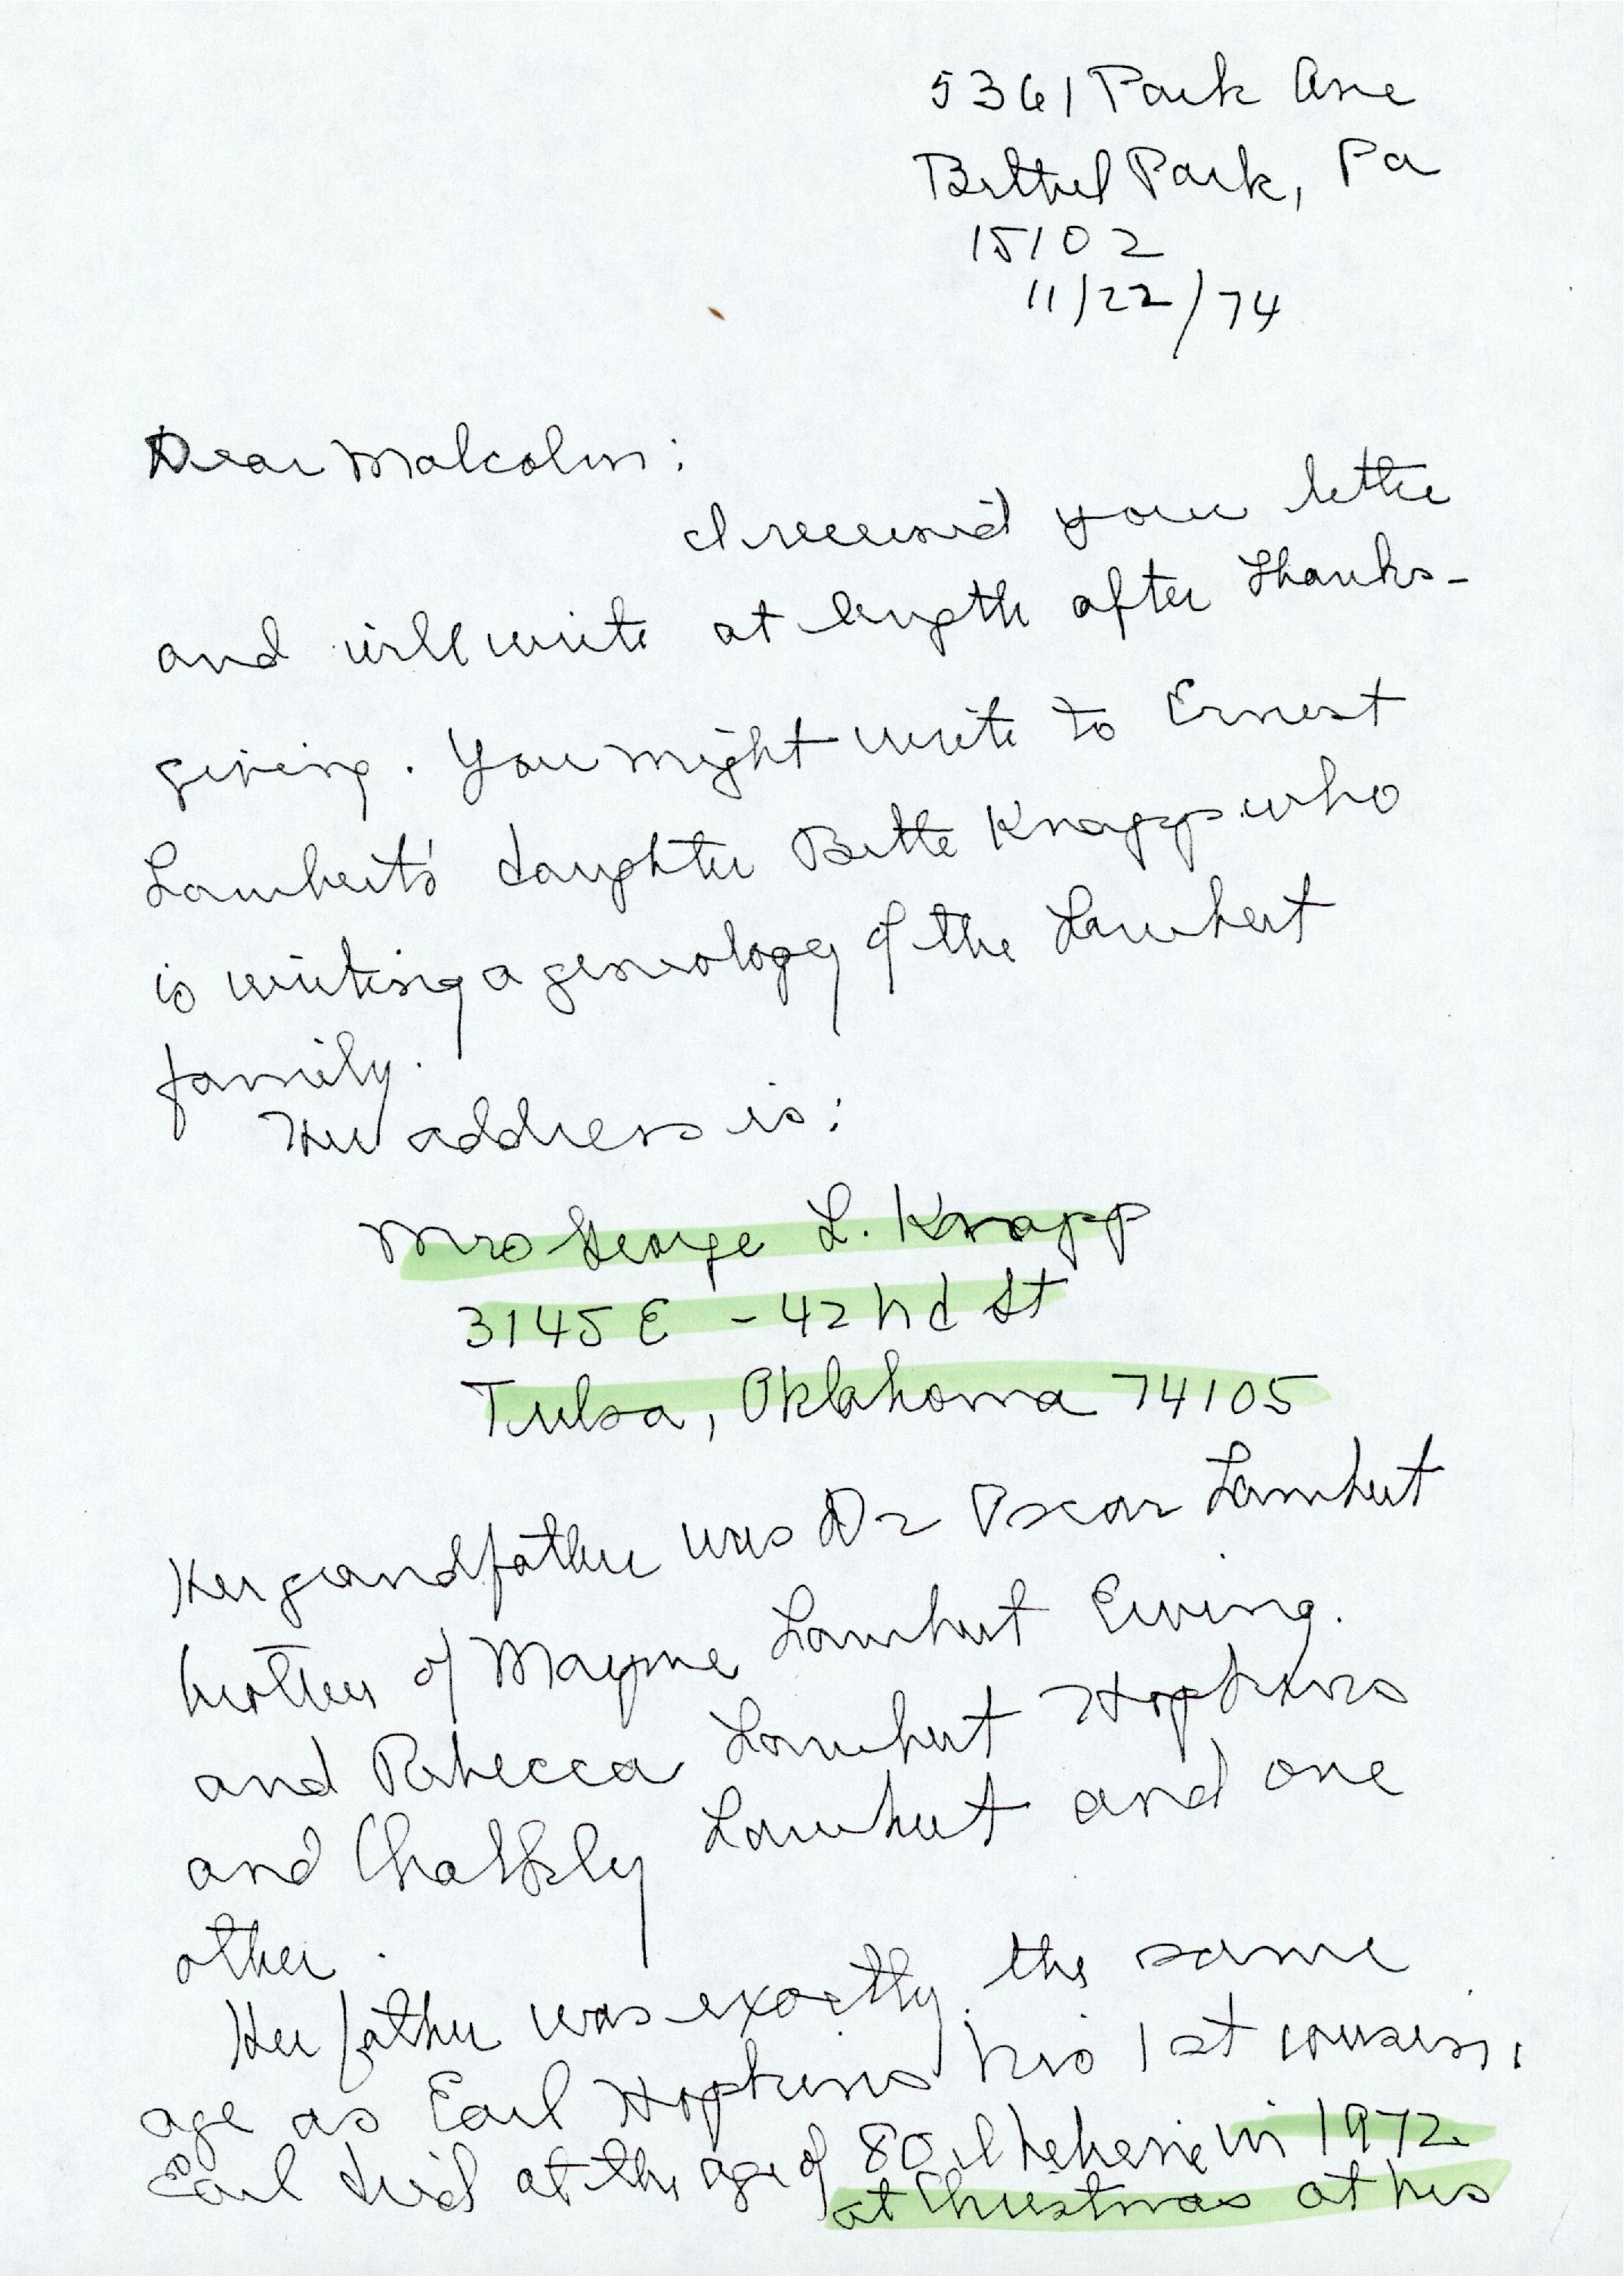 5361 Park Ave
Bethel Park, Pa
15102
11/22/74
Dear Malcolm:
I received your letter
and will write at length after Thanks-
giving. You might write to Ernest
Lambert's daughter Bette Knapp who
is writing a geneology of the Lambert
family.
Her address is:
Mrs George L. Knapp
3145 E - 42nd St
Tulsa, Oklahoma 74105
Her grandfather was Dr Oscar Lambert
brother of Mayme Lambert Ewing.
and Rebecca Lambert Hopkins
and Chalkly Lambert and one
other.
Her father was exactly the same
age as Earl Hopkins his 1st cousin.
Earl died at the age of 80 I believe in 1972
at Christmas at his